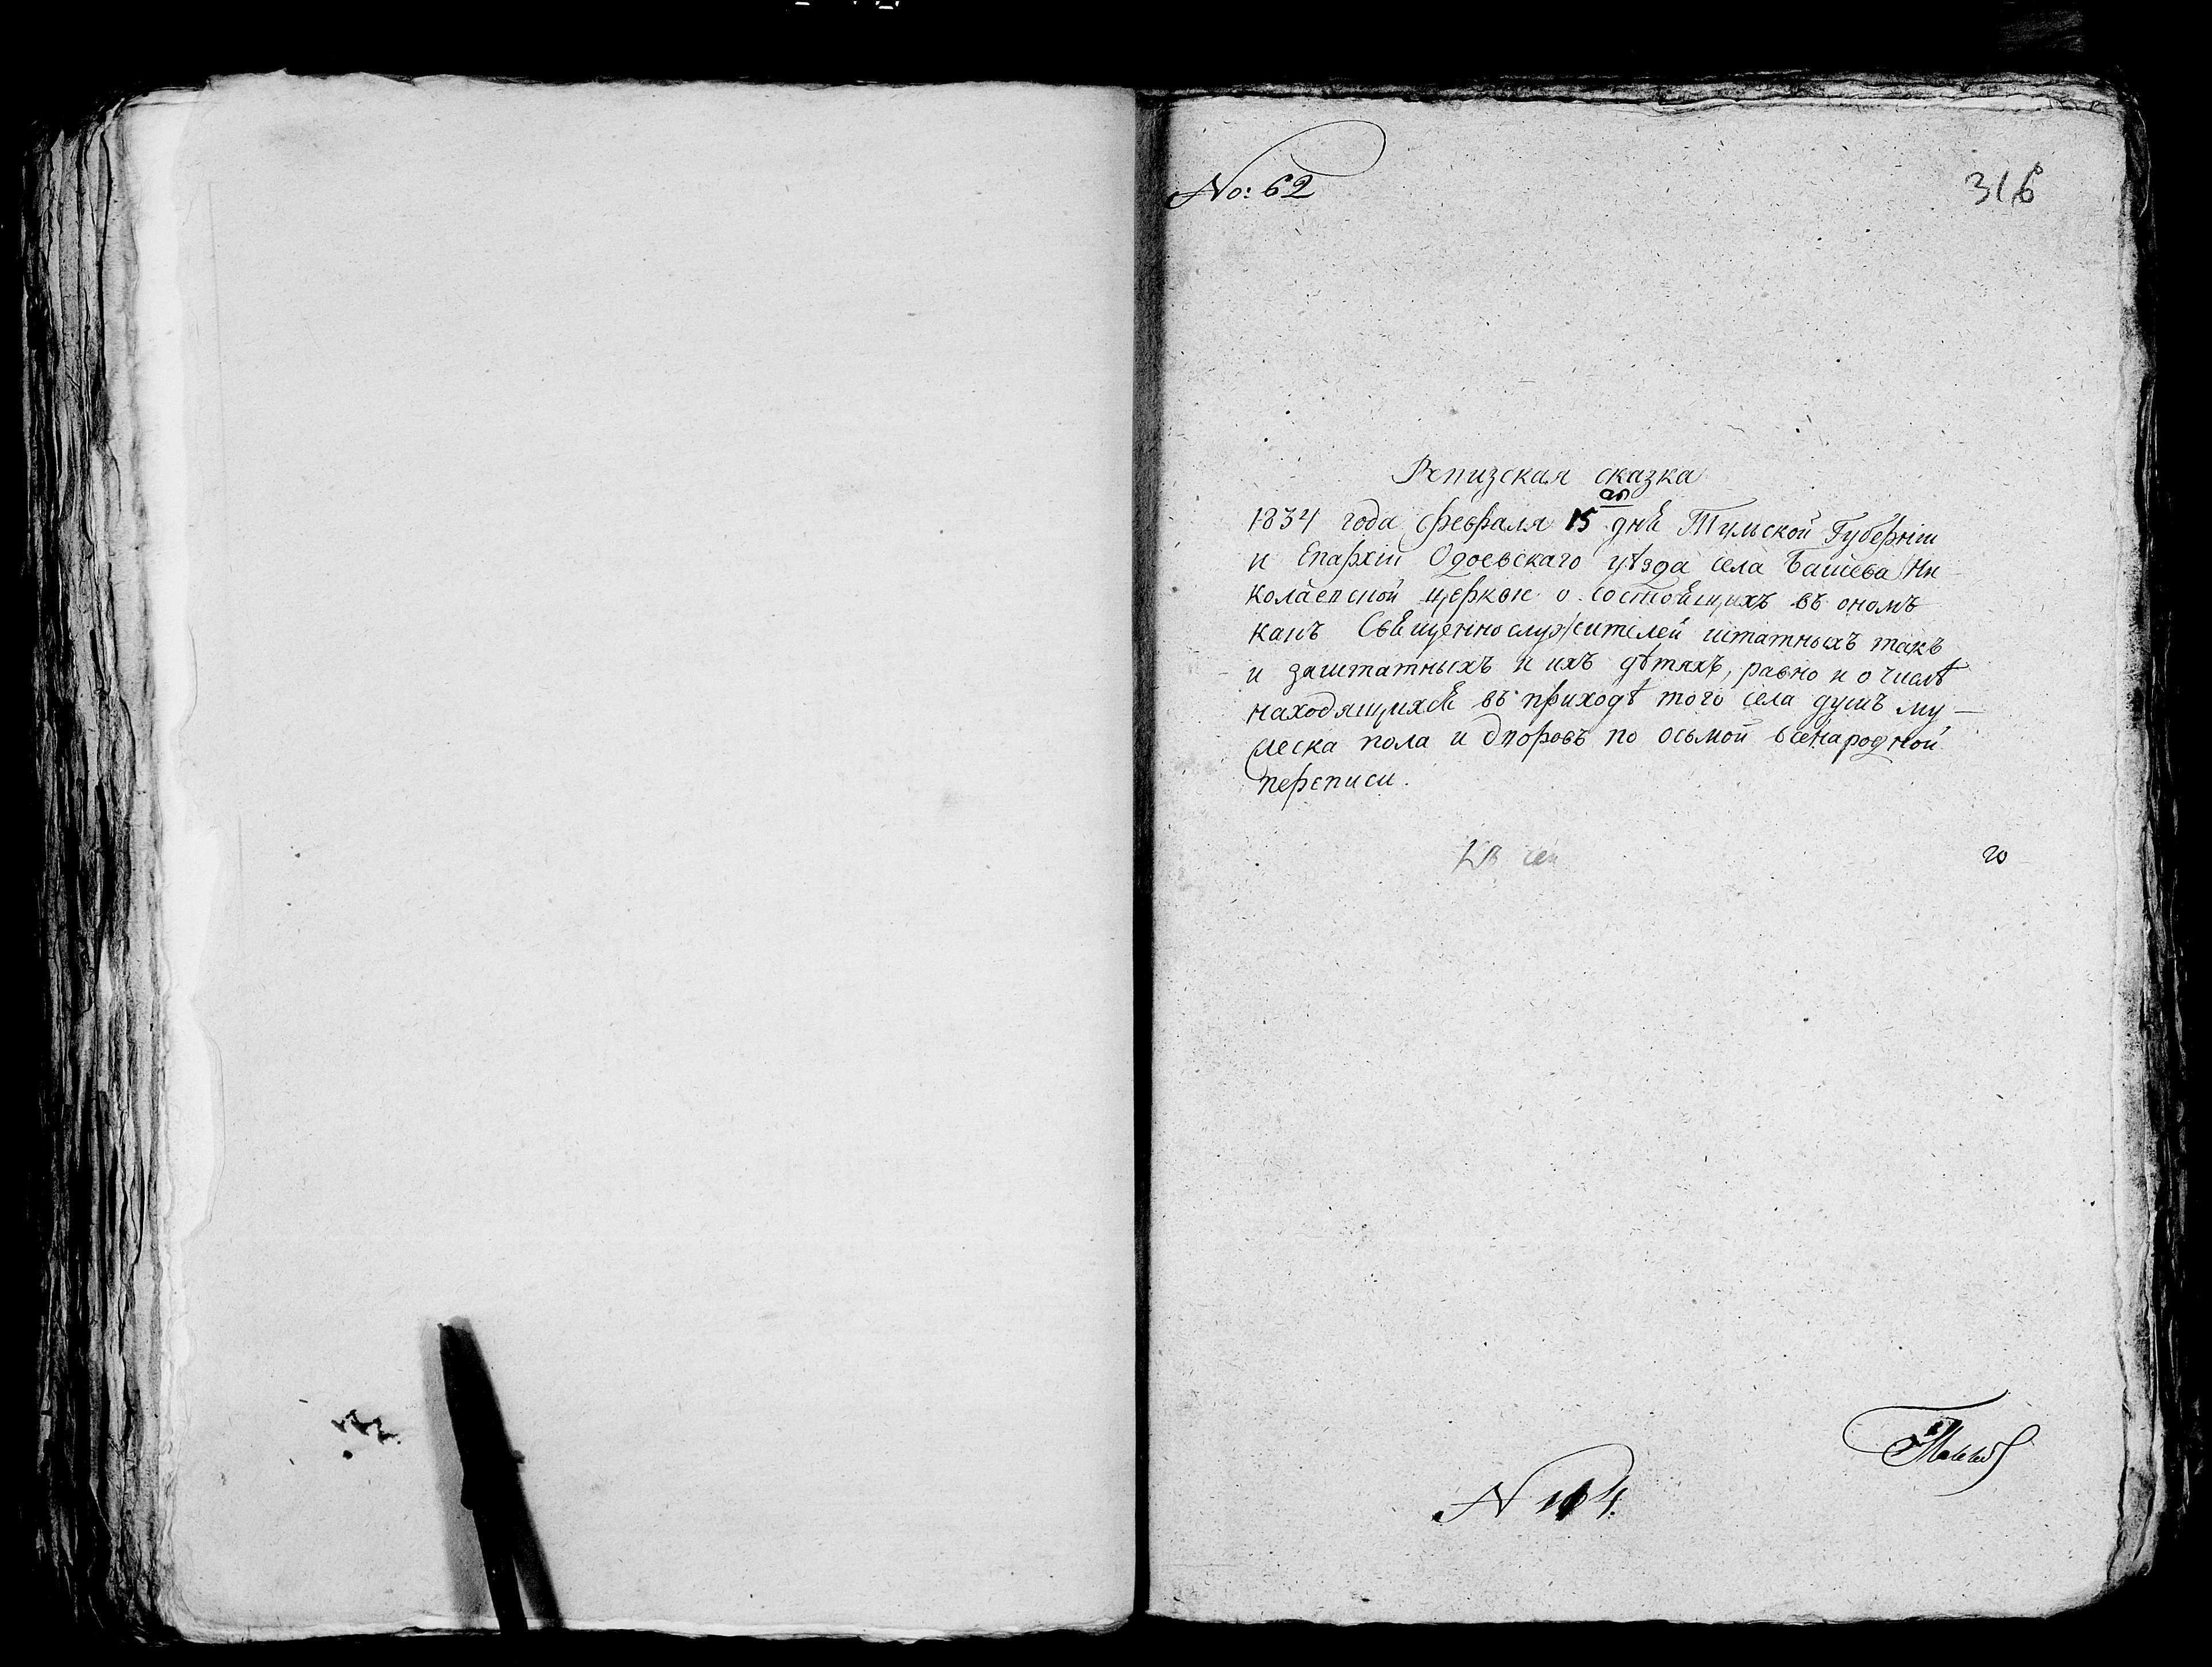 No: 62
316
Ревизская сказка
1834 года февраля 15 дня Тульской Губерніи
и Епархіи Одоевскаго уѣзда села Башева Ни
колаевской церкви о состоящихъ въ ономъ
какъ Священнослужителей штатныхъ такъ
и заштатныхъ и ихъ дѣтяхъ, равно и о числѣ
находящихся въ приходѣ того села душъ му-
жеска пола и дворовъ по осьмой всенародной
переписи.
Въ сей
го
N 104.